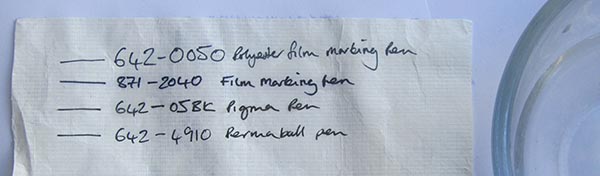 642-0050 Polyester film marking Pen
871-2040 Film marking Pen
642-05BK Pigma Pen
642-4910 Permaball pen